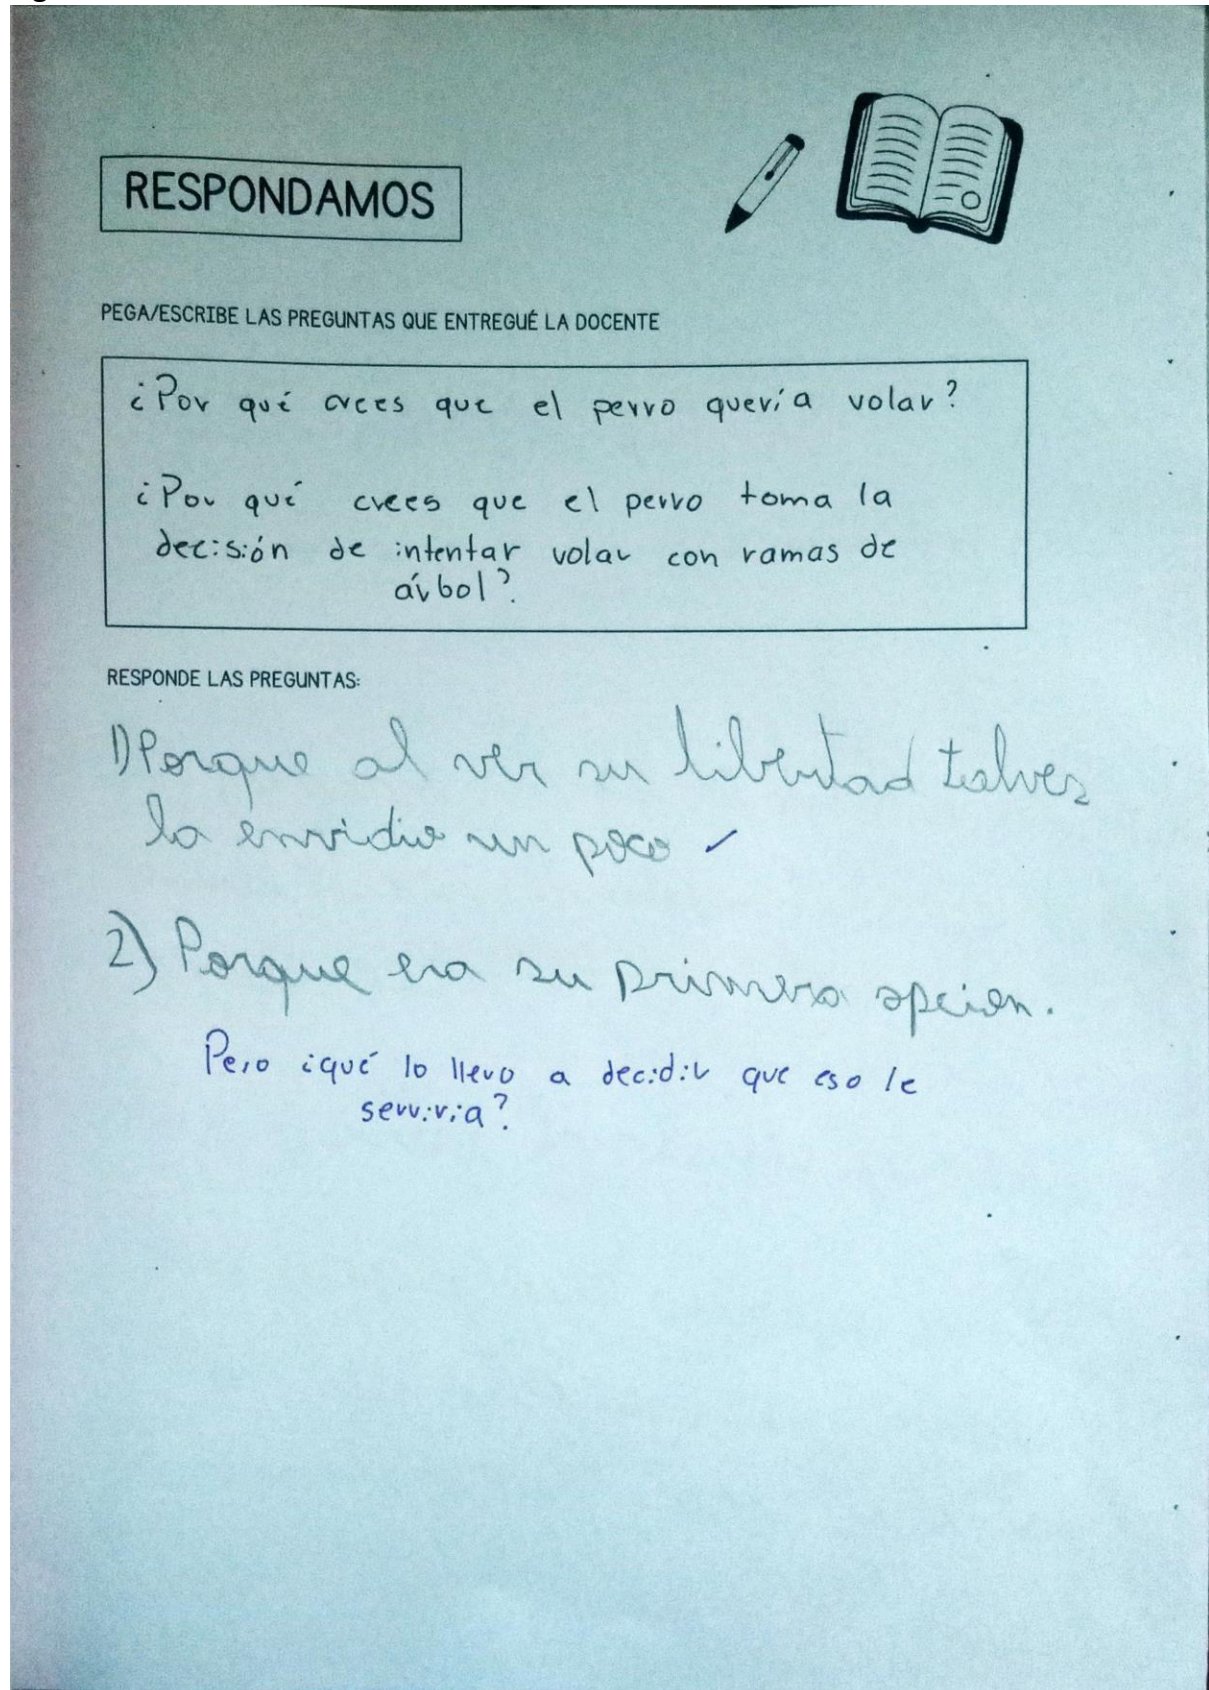 RESPONDAMOS
PEGA/ESCRIBE LAS PREGUNTAS QUE ENTREGUÉ LA DOCENTE
¿Por qué crees que el perro quería volar?
¿Por qué crees que el perro toma la
decisión de intentar volar con ramas de
árbol?
RESPONDE LAS PREGUNTAS:
1) Porque al ver su libertad talves
la envidio un poco ✓
2) Porque era su primera opcion.
Pero ¿qué lo llevo a decidir que eso le
serviria?